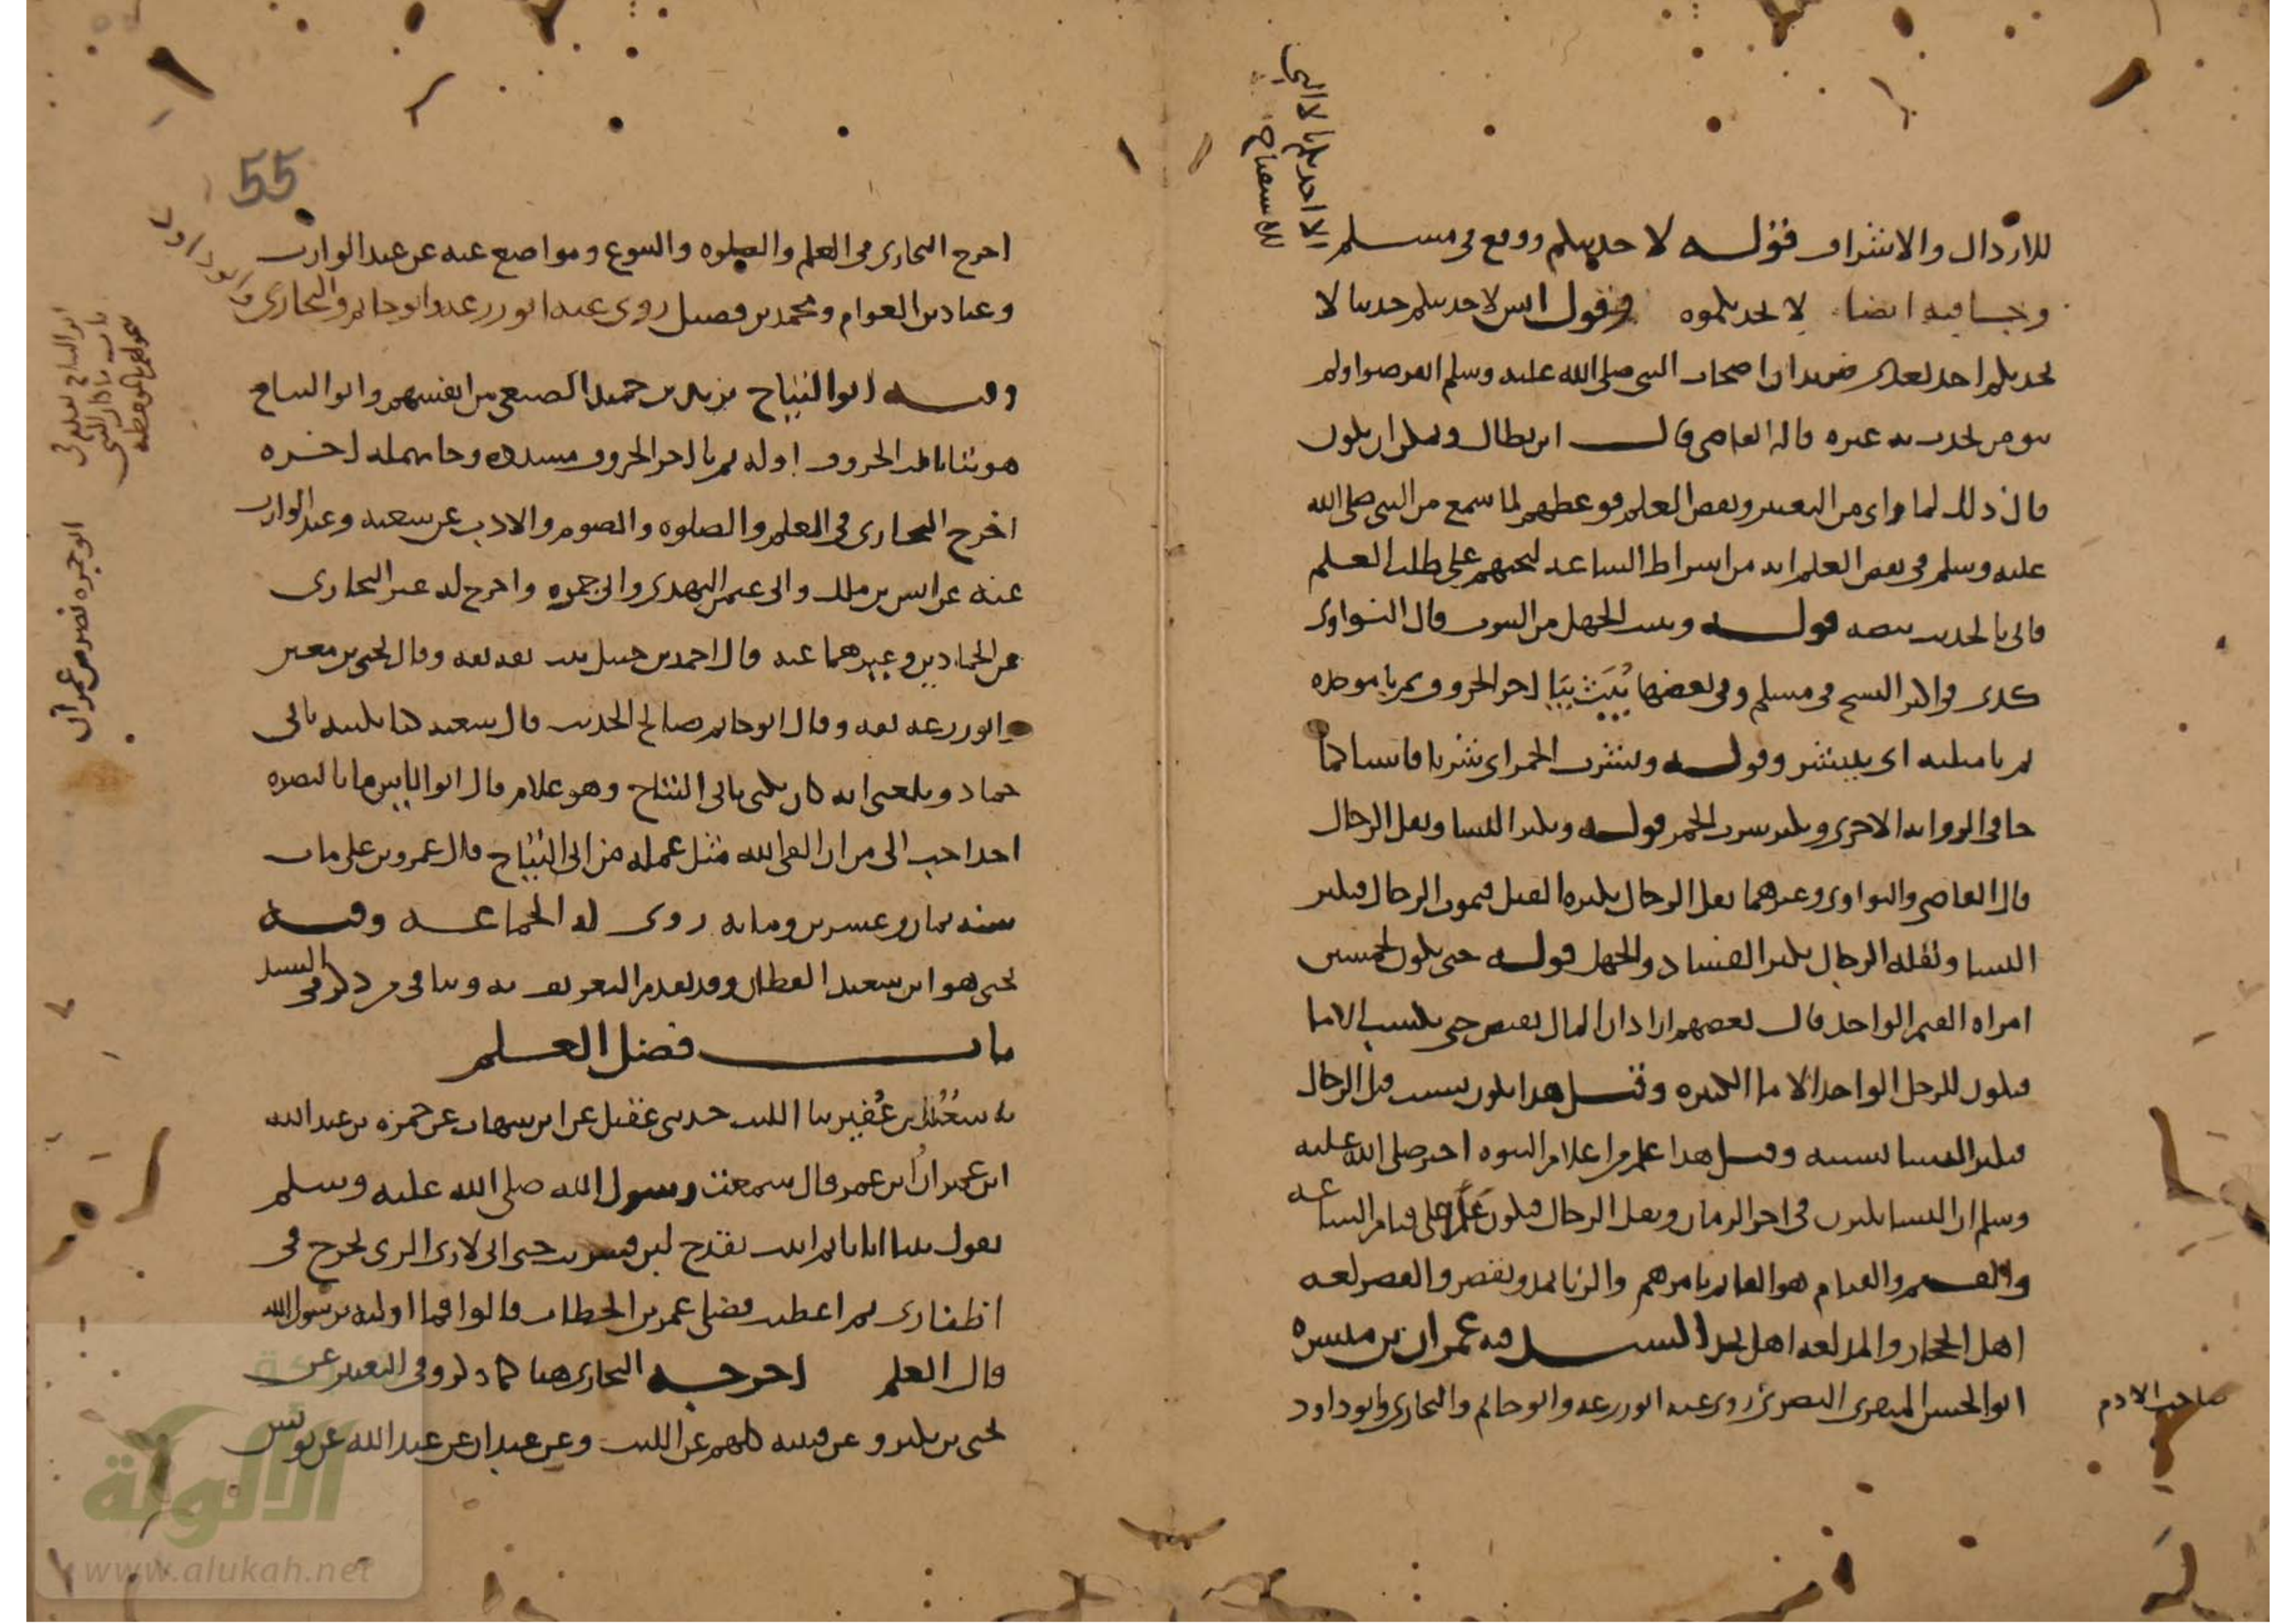 للارذال والاشراف قوله لاحدثنكم ووقع في مسلم
وجا فيه ايضا لا يحدثكموه وقول انس لاحدثنكم حديثا لا
يحدثكم احد بعدي يريد ان اصحاب النبي صلى الله عليه وسلم انقرضوا ولم
يبق من يحدث به غيره قاله القاضي قال ابن بطال ويمكن ان يكون
قال ذلك لما راى من التغيير ونقص العلم فوعظهم لما سمع من النبي صلى الله
عليه وسلم في نقص العلم انه من اشراط الساعة ليحضهم على طلب العلم
فاتى بالحديث بنصه قوله ويثبت الجهل من الثبوت قال النواوي
كذى في اكثر النسخ في مسلم وفي بعضها يُبَث بيا اخر الحروف ثم با موحده
ثم ثا مثلثه اي ينتشر وقوله وتشرب الخمر اي شربا فاشيا كما
جا في الرواية الاخرى ويكثر شرب الخمر قوله ويكثر النسا ويقل الرجال
قال القاضي والنواوي وغيرهما يقل الرجال بكثرة القتل فيموت الرجال فيكثر
النسا وبقلة الرجال يكثر الفساد والجهل قوله حتى يكون لخمسين
امراة القيم الواحد قال بعضهم اراد ان المال يفيض حتى يكتسب الاما
فيكون للرجل الواحد الاما الكثيره وقيل هذا يكون بسبب قتل الرجال
فيكثر النسا بسببه وقيل هذا علم من اعلام النبوه اخبر صلى الله عليه
وسلم ان النسا يكثرن في اخر الزمان ويقل الرجال فيكون عَلَما على قيام الساعة
والقيم والقيام هو القائم بامرهم والزنا يمد ويقصر والقصر لغه
اهل الحجاز والمد لغه اهل نجد السند فيه عمران بن ميسره
ابو الحسن المنقري البصري روى عنه ابو زرعه وابو حاتم والبخاري وابو داود
صاحب الادم
الا احد
للاستفتاح
55
اخرج البخاري في العلم والصلوه والبيوع ومواضع عنه عن عبد الوارث
وعباد بن العوام ومحمد بن فضيل روى عنه ابو زرعه وابو حاتم والبخاري
وابو داود
وفيه ابو التياح يزيد بن حميد الضبعي من انفسهم وابو التياح
هو بتا ثالث الحروف اوله ثم يا اخر الحروف مشدده وحا مهمله اخره
اخرج البخاري في العلم والصلوه والصوم والادب عن شعبه وعبد الوارث
عنه عن انس بن ملك وابي عثمن النهدي وابي جمره واخرج له غير البخاري
عن الحمادين وغيرهما عنه قال احمد بن حنبل ثبت ثقه ثقه وقال يحيى بن معين
وابو زرعه ثقه وقال ابو حاتم صالح الحديث قال شعبه كنا نكنيه بابي
حماد وبلغني انه كان يكنى بابي التياح وهو غلام قال ابو اياس ما بالبصره
احد احب الى من ان القى الله مثل عمله من ابي التياح قال عمرو بن علي مات
سنه ثمان وعشرين ومايه روى له الجماعه وفيه
يحيى هو ابن سعيد القطان وقد تقدم التعريف به وبباقي من ذكر في السند
باب فضل العلم
نا سَعيد بن عُفَير نا الليث حدثني عقيل عن ابن شهاب عن حمزه بن عبد الله
ابن عمر ان ابن عمر قال سمعت رسول الله صلى الله عليه وسلم
يقول بينا انا نايم اتيت بقدح لبن فشربت حتى اني لارى الري يخرج في
اظفاري ثم اعطيت فضلي عمر بن الخطاب قالوا فما اولته يرسول الله
قال العلم اخرجه البخاري هنا كما ذكر وفي التعبير عن
يحيى بن بكير وعن قتيبه كلهم عن الليث وعن عبدان عن عبد الله عن يونس
ابو جمره نصر بن عمران
الألوكة
www.alukah.net